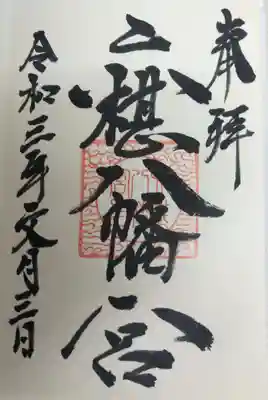 奉拝
八幡宮
令和三年文月三日